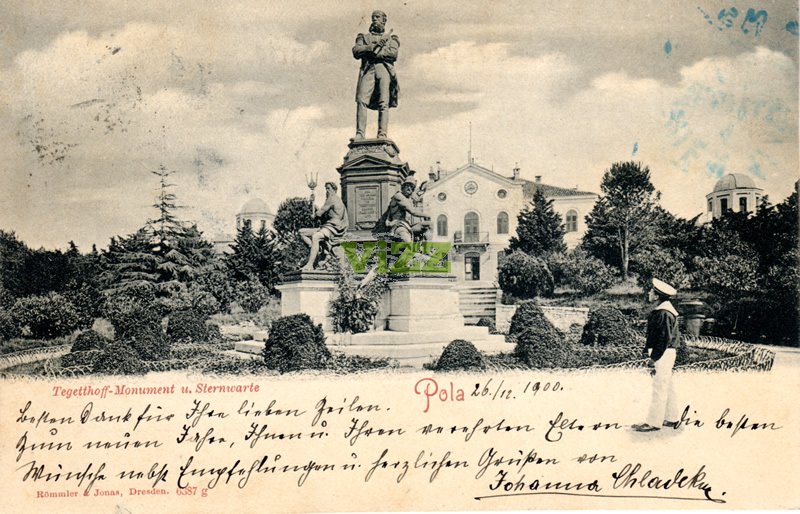 vizz
Tegetthoff-Monument u. Sternwarte
Pola 26/12. 1900.
Besten Dank für Ihre lieben Zeilen.
Zum neuen Jahre, Ihnen u. Ihren verehrten Eltern die besten
Wünsche nebst Empfehlungen u. herzlichen Grüßen von
Johanna Chladek
Römmler & Jonas, Dresden. 6387 g